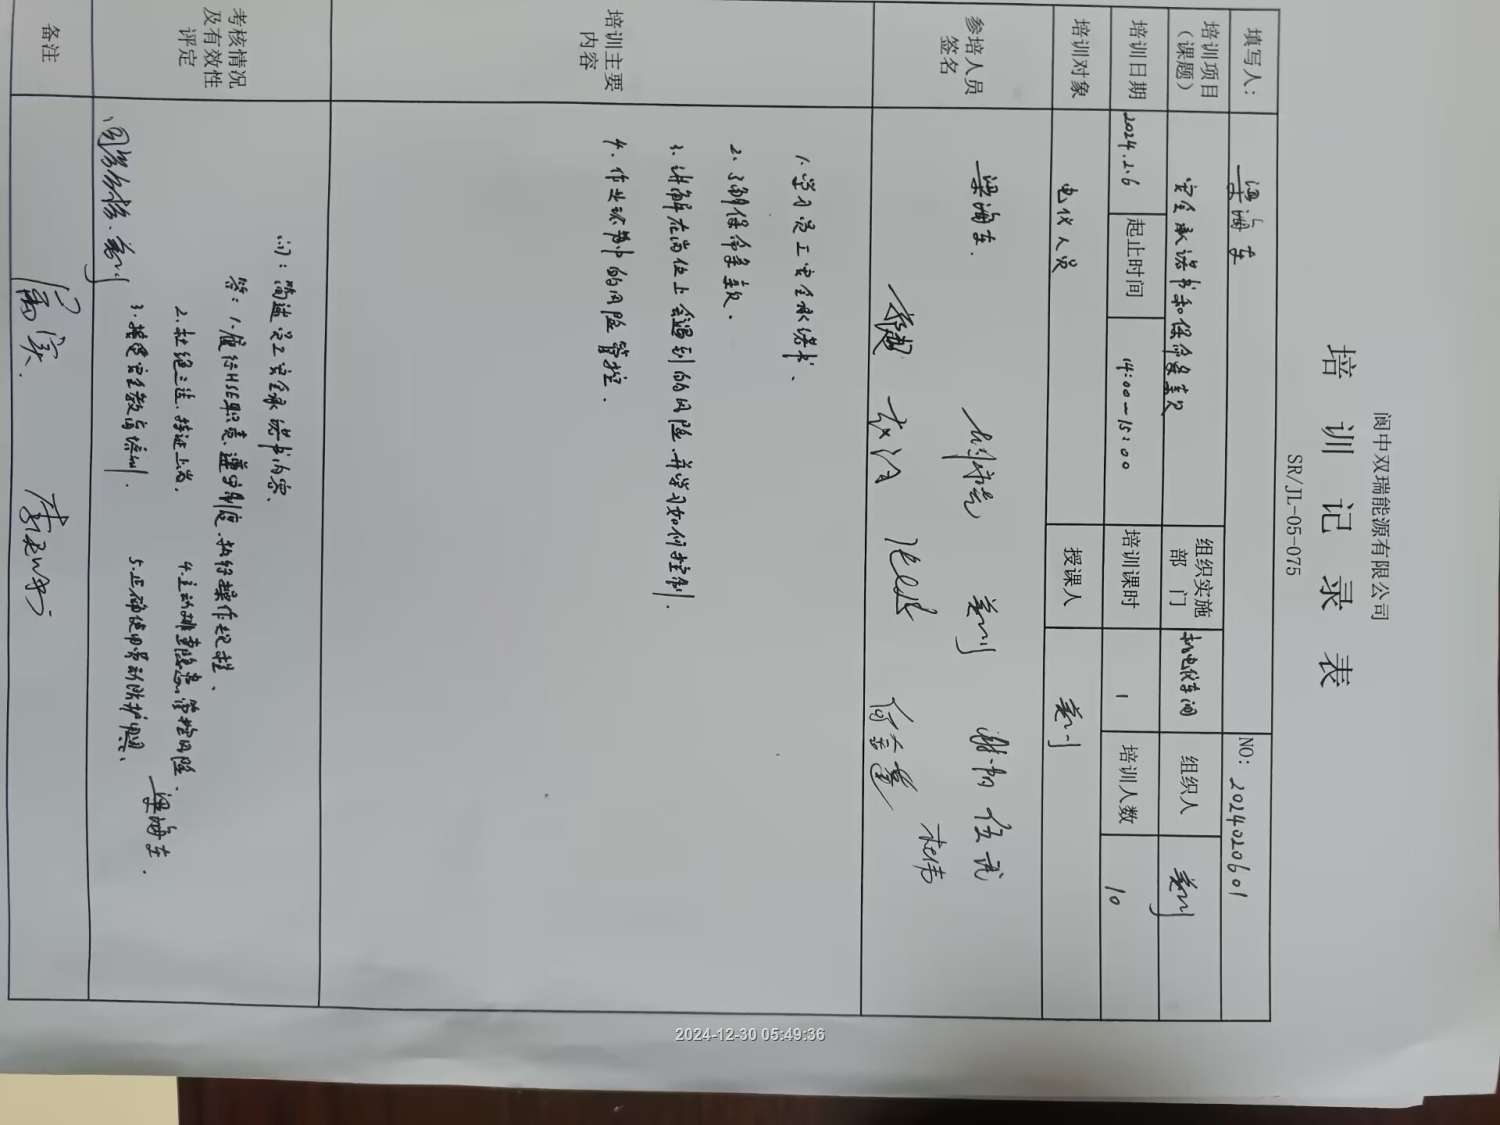 阆中双瑞能源有限公司
培训记录表
SR/JL-05-075
填写人： 梁海东 NO: 2024020601
培训项目（课题） 安全承诺书和保命条款 组织实施部门 机电仪车间 组织人 姜川
培训日期 2024.2.6 起止时间 14:00-15:00 培训课时 1 培训人数 10
培训对象 电仪人员 授课人 姜川
参培人员签名
梁海东 姜川 谢韬 伍武
杜伟
培训主要内容
1. 学习员工安全承诺书、
2. 了解保命条款.
3. 讲解在岗位上会遇到的风险,并学习如何控制.
4. 作业环节中的风险管控.
考核情况及有效性评定
问：简述员工安全承诺书内容.
答：1. 履行HSE职责、遵守制度、执行操作规程、
2. 杜绝三违、持证上岗. 4. 主动排查隐患,管控风险.
3. 接受安全教育培训. 5. 正确使用劳动防护用品、
梁海东.
姜川
备注
2024-12-30 05:49:36